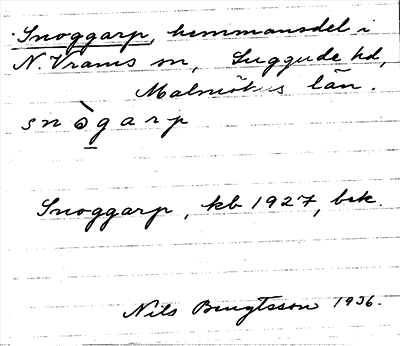 Snoggarp, hemmansdel i
N. Vrams sn, Luggude hd,
Malmöhus län.
snògarp
Snoggarp, kb 1927, bsk.
Nils Bengtsson 1936.